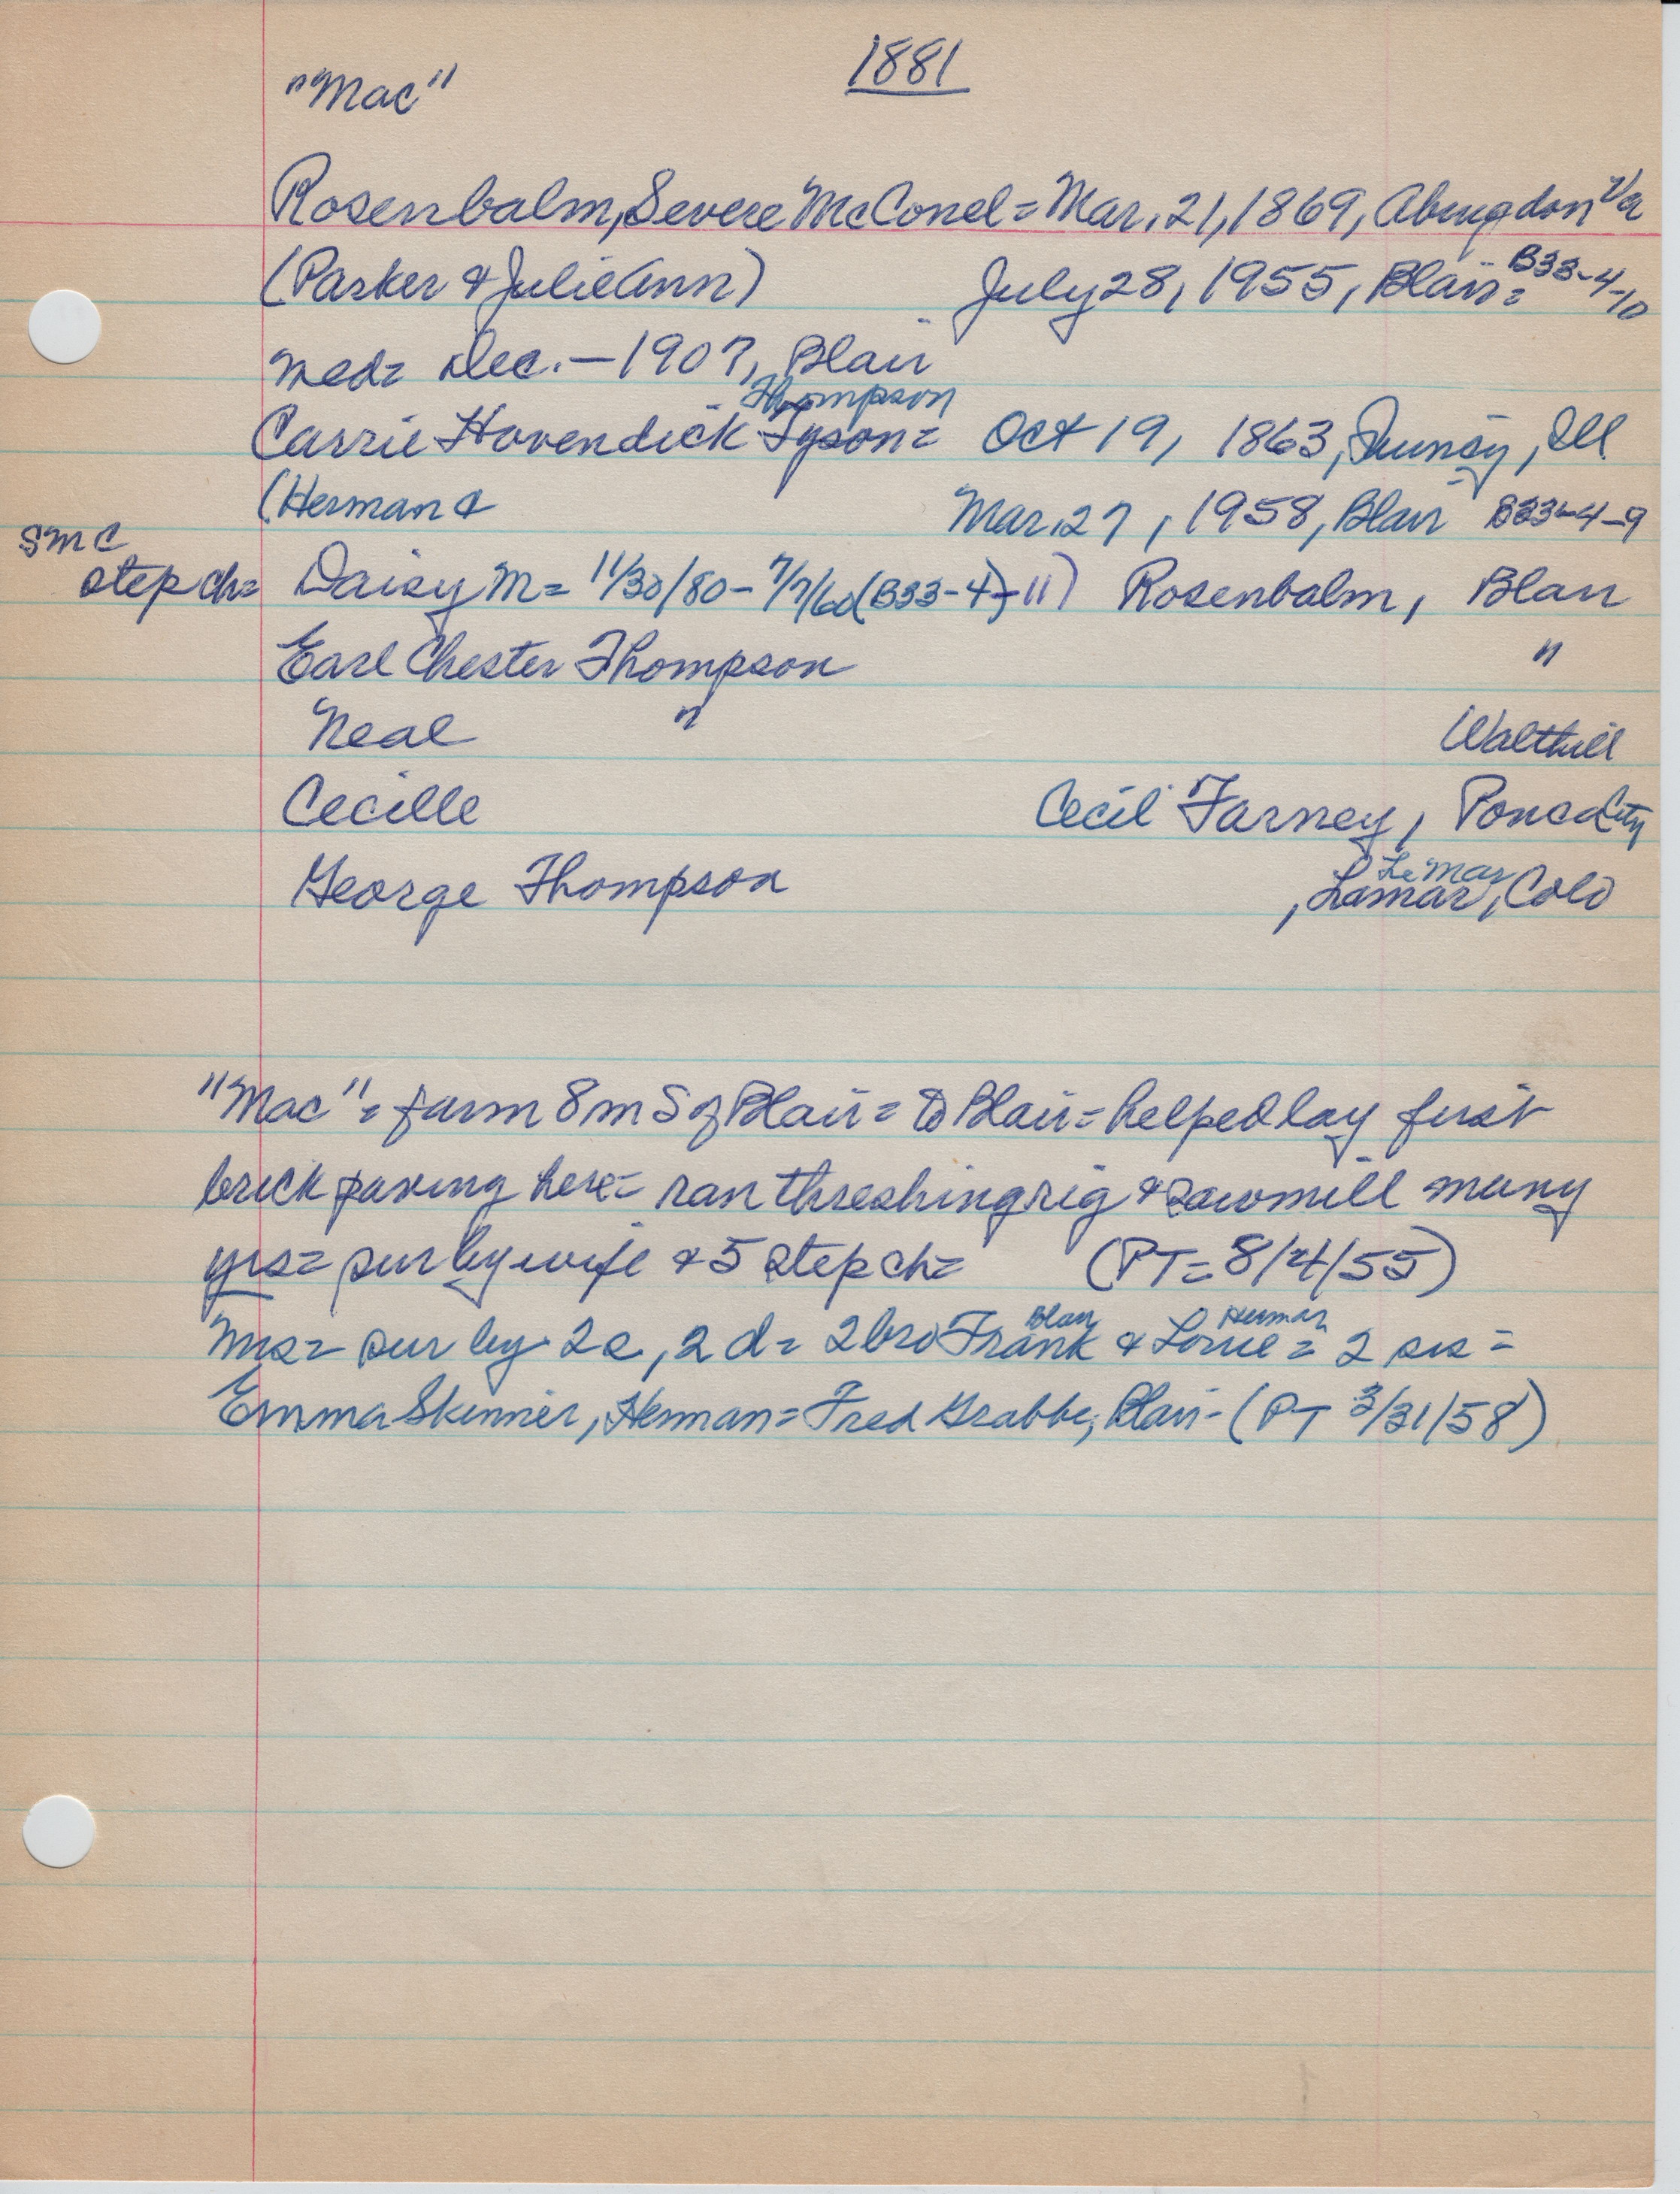 1881
"Mac"
Rosenbalm, Severe McConel = Mar. 21, 1869, Abingdon Va
(Parker & Julie Ann) July 28, 1955, Blair = B33-4-10
med = Dec. — 1907, Blair
Thompson
Carrie Hovendick Tyson = Oct 19, 1863, Ill
(Herman & Mar. 27, 1958, Blair B33-4-9
SMC
step ch = Daisy M = 11/30/80 - 7/7/60 (B33-4)-11) Rosenbalm, Blair
Earl Chester Thompson "
Neal " Walthill
Cecille Cecil Farney, Ponca City
LeMar
George Thompson , Lamar, Colo
"Mac" = farm 8 m S of Blair = to Blair = helped lay first
brick paving here = ran threshing rig & sawmill many
yrs = sur by wife & 5 step ch = (PT = 8/4/55)
Blair Herman
Mrs = sur by 2 s, 2 d = 2 bro Frank & = 2 sis =
Emma Skinner, Herman = Fred Grabbe, Blair - (PT 3/31/58)